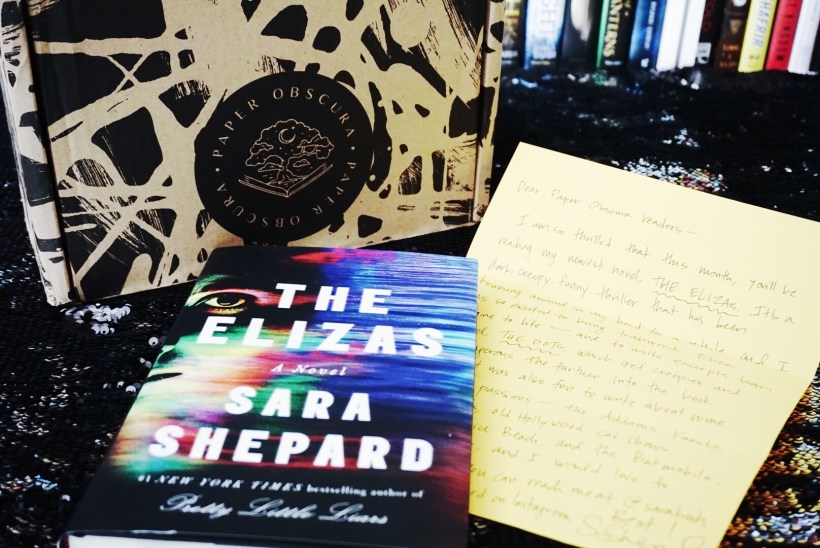 PAPER OBSCURA · PAPER OBSCURA ·
THE
ELIZAS
A Novel
SARA
SHEPARD
#1 NEW YORK TIMES bestselling author of
Pretty Little Liars
Dear Paper Obscura Readers —
I am so thrilled that this month, you'll be
reading my newest novel, THE ELIZAS. It's a
dark, creepy, funny thriller that has been
running around in my head for a while and I
so excited to bring
to life — and to write excerpts from
THE DOTS, which get creepier and
the farther into the book
was also fun to write about some
passions — the Addams Family,
old Hollywood cat shows,
Beach, and the Batmobile.
and I would love to
can reach me at
on Instagram. Best!